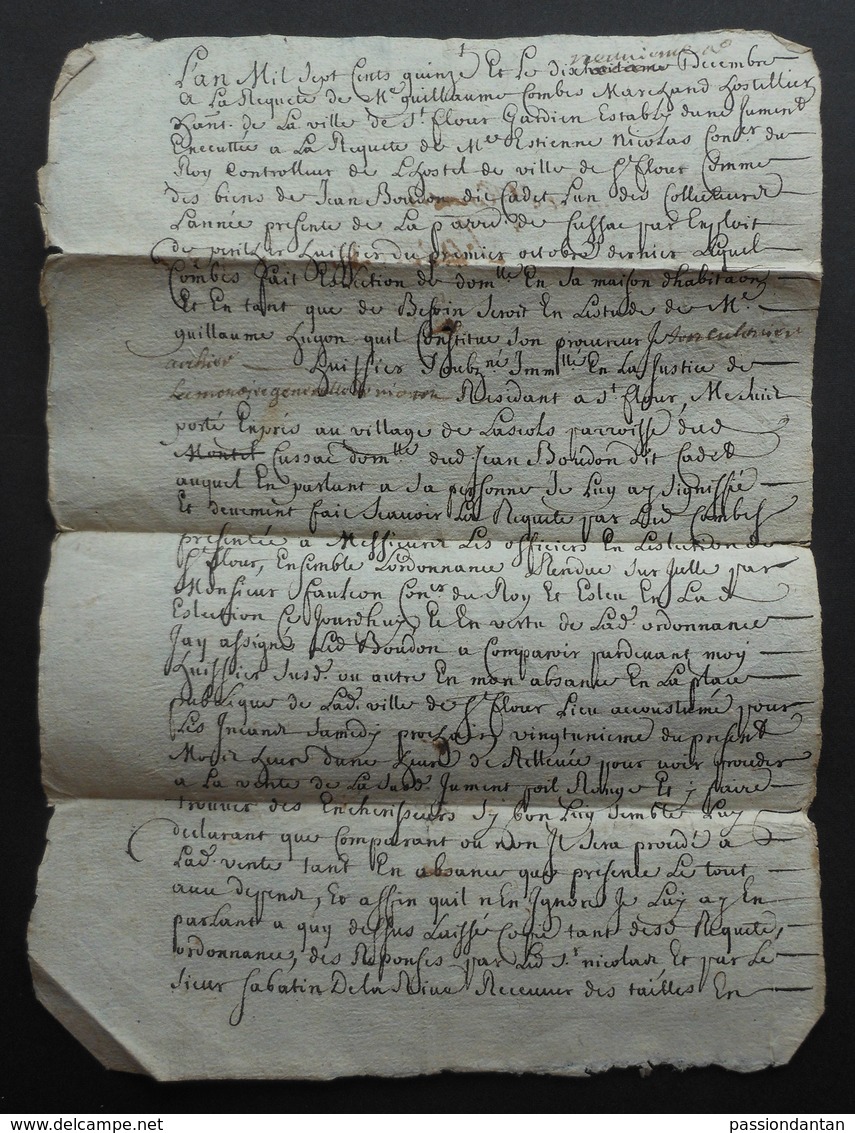 neuvieme de
Lan Mil sept Cents quinze Et Le dixhuitieme Decembre
a La Requete de Me guillaume Combes Marchand hostellier
hant. de La ville de St flour Gardien Estably dune Jument
Executtée a La Requete de Me Estienne Nicolas Coner du
Roy Controlleur de Lhostel de ville de St flour Comme
des biens de Jean Boudon dit Cadet Lun des Collecteurs
Lannée presente de La parre de Cussac par Exploit
de huissier du premier octobre dernier Lequel
Combes fait Eslection de domlle En sa maison dhabitaon
Et En tant que de Besoin seroit En Lestude de Me
guillaume hugon quil Constitue son procureur Je
archier huissier Soubzné Immlle En La Justice de
Residant a St flour, Me suis
porté Exprès au village de Lascols parroisse dud
Montel Cussac domlle dud Jean Boudon dit Cadet
auquel En parlant a sa personne Je Luy ay signiffié
Et deuement fait scavoir La Requete par Led Combes
presentée a Messieurs Les officiers En Leslection de
St flour, Ensemble Lordonnance Rendue sur Jcelle par
Monsieur Coner du Roy Et Esleu En Lad
Eslection Ce Jourdhuy Et En vertu de Lad. ordonnance
Jay assigné Led Boudon a Comparoir pardevant moy
huissier susd. ou autre En mon absance En La place
publique de Lad. ville de St flour Lieu accoustumé pour
Les Incands Samedy prochain vingtunieme du present
Mois heure dune heure de Rellevée pour voir proceder
a La vente de La susd. Jument poil Rouge Et y faire
trouver des Encherisseurs sy bon Luy semble Luy
declarant que Comparant ou non Jl sera procedé a
Lad. vente tant En absance que presence Le tout
avec depens, Et affin quil nEn Ignore Je Luy ay En
parlant a quy dessus Laissé Copie tant desd Requete,
ordonnance, des Reponses par Led Sr nicolas Et par Le
sieur Sabatin De la Rive Receveur des tailles En
passiondantan